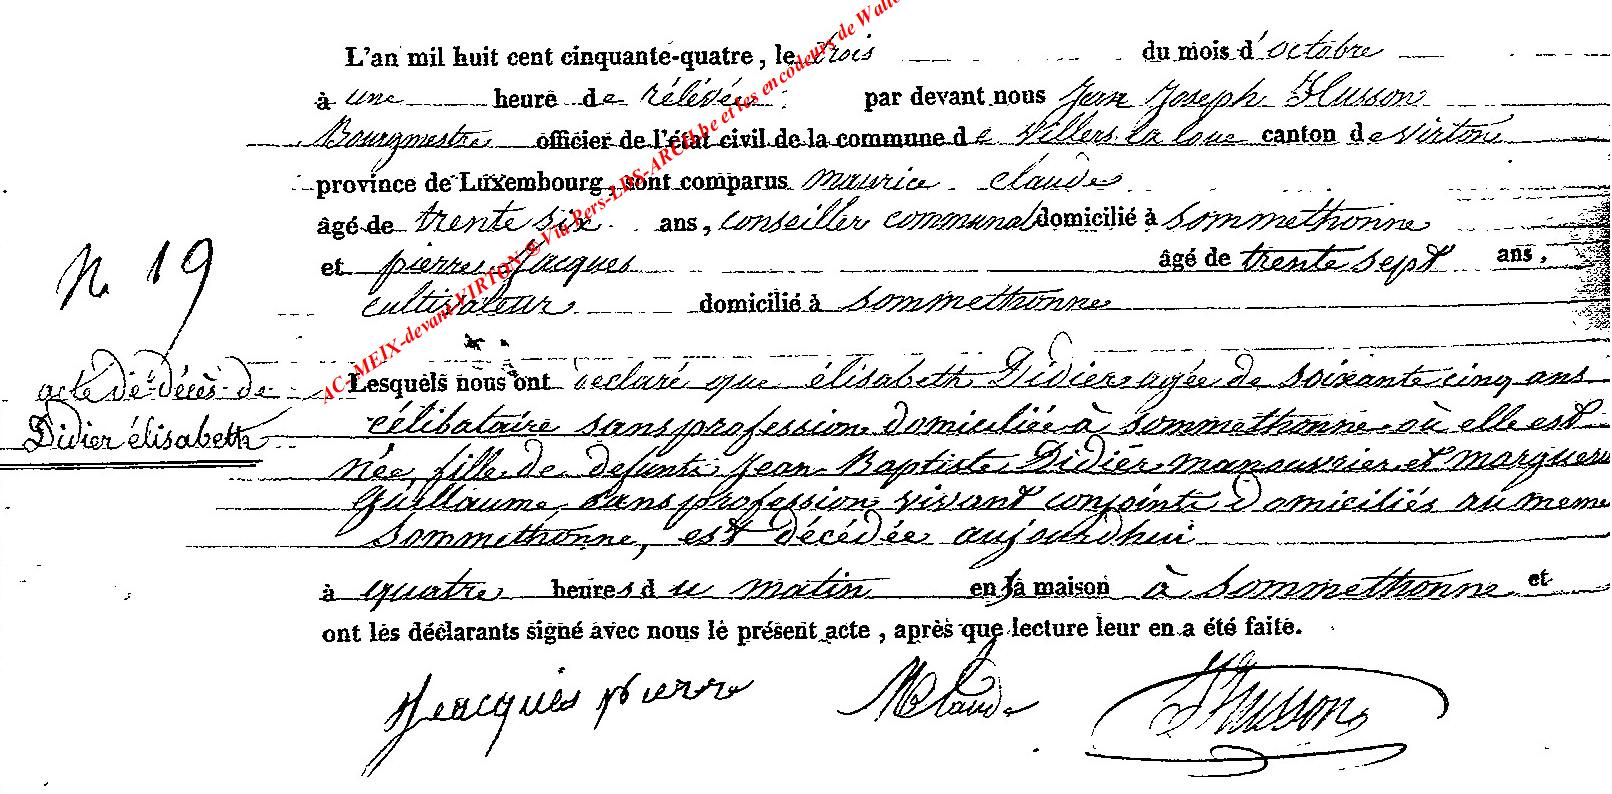 L'an mil huit cent cinquante-quatre, le trois du mois d'octobre
à une heure de rélévée par devant nous Jean Joseph Husson
Bourgmestre officier de l'état civil de la commune de Villers la loue canton de virton
province de Luxembourg, sont comparus maurice claude
âgé de trente six ans, conseiller communal domicilié à sommethonne
N. 19
et pierre Jacques âgé de trente sept ans,
cultivateur domicilié à sommethonne
acte de décès de
Didier élisabeth
Lesquels nous ont déclaré que élisabeth Didier agée de soixante cinq ans
célibataire sans profession domiciliée à sommethonne où elle est
née, fille de defunts Jean Baptiste Didier manouvrier et
Guillaume sans profession vivant conjoints domiciliés au meme
Sommethonne, est décédée aujourdhui
à quatre heures du matin en sa maison à sommethonne et
ont les déclarants signé avec nous le présent acte, après que lecture leur en a été faite.
Jacques pierre MClaude Husson
AC-MEIX-devant-VIRTON & Via Pers-LDS-ARCH.be et les encodeurs de